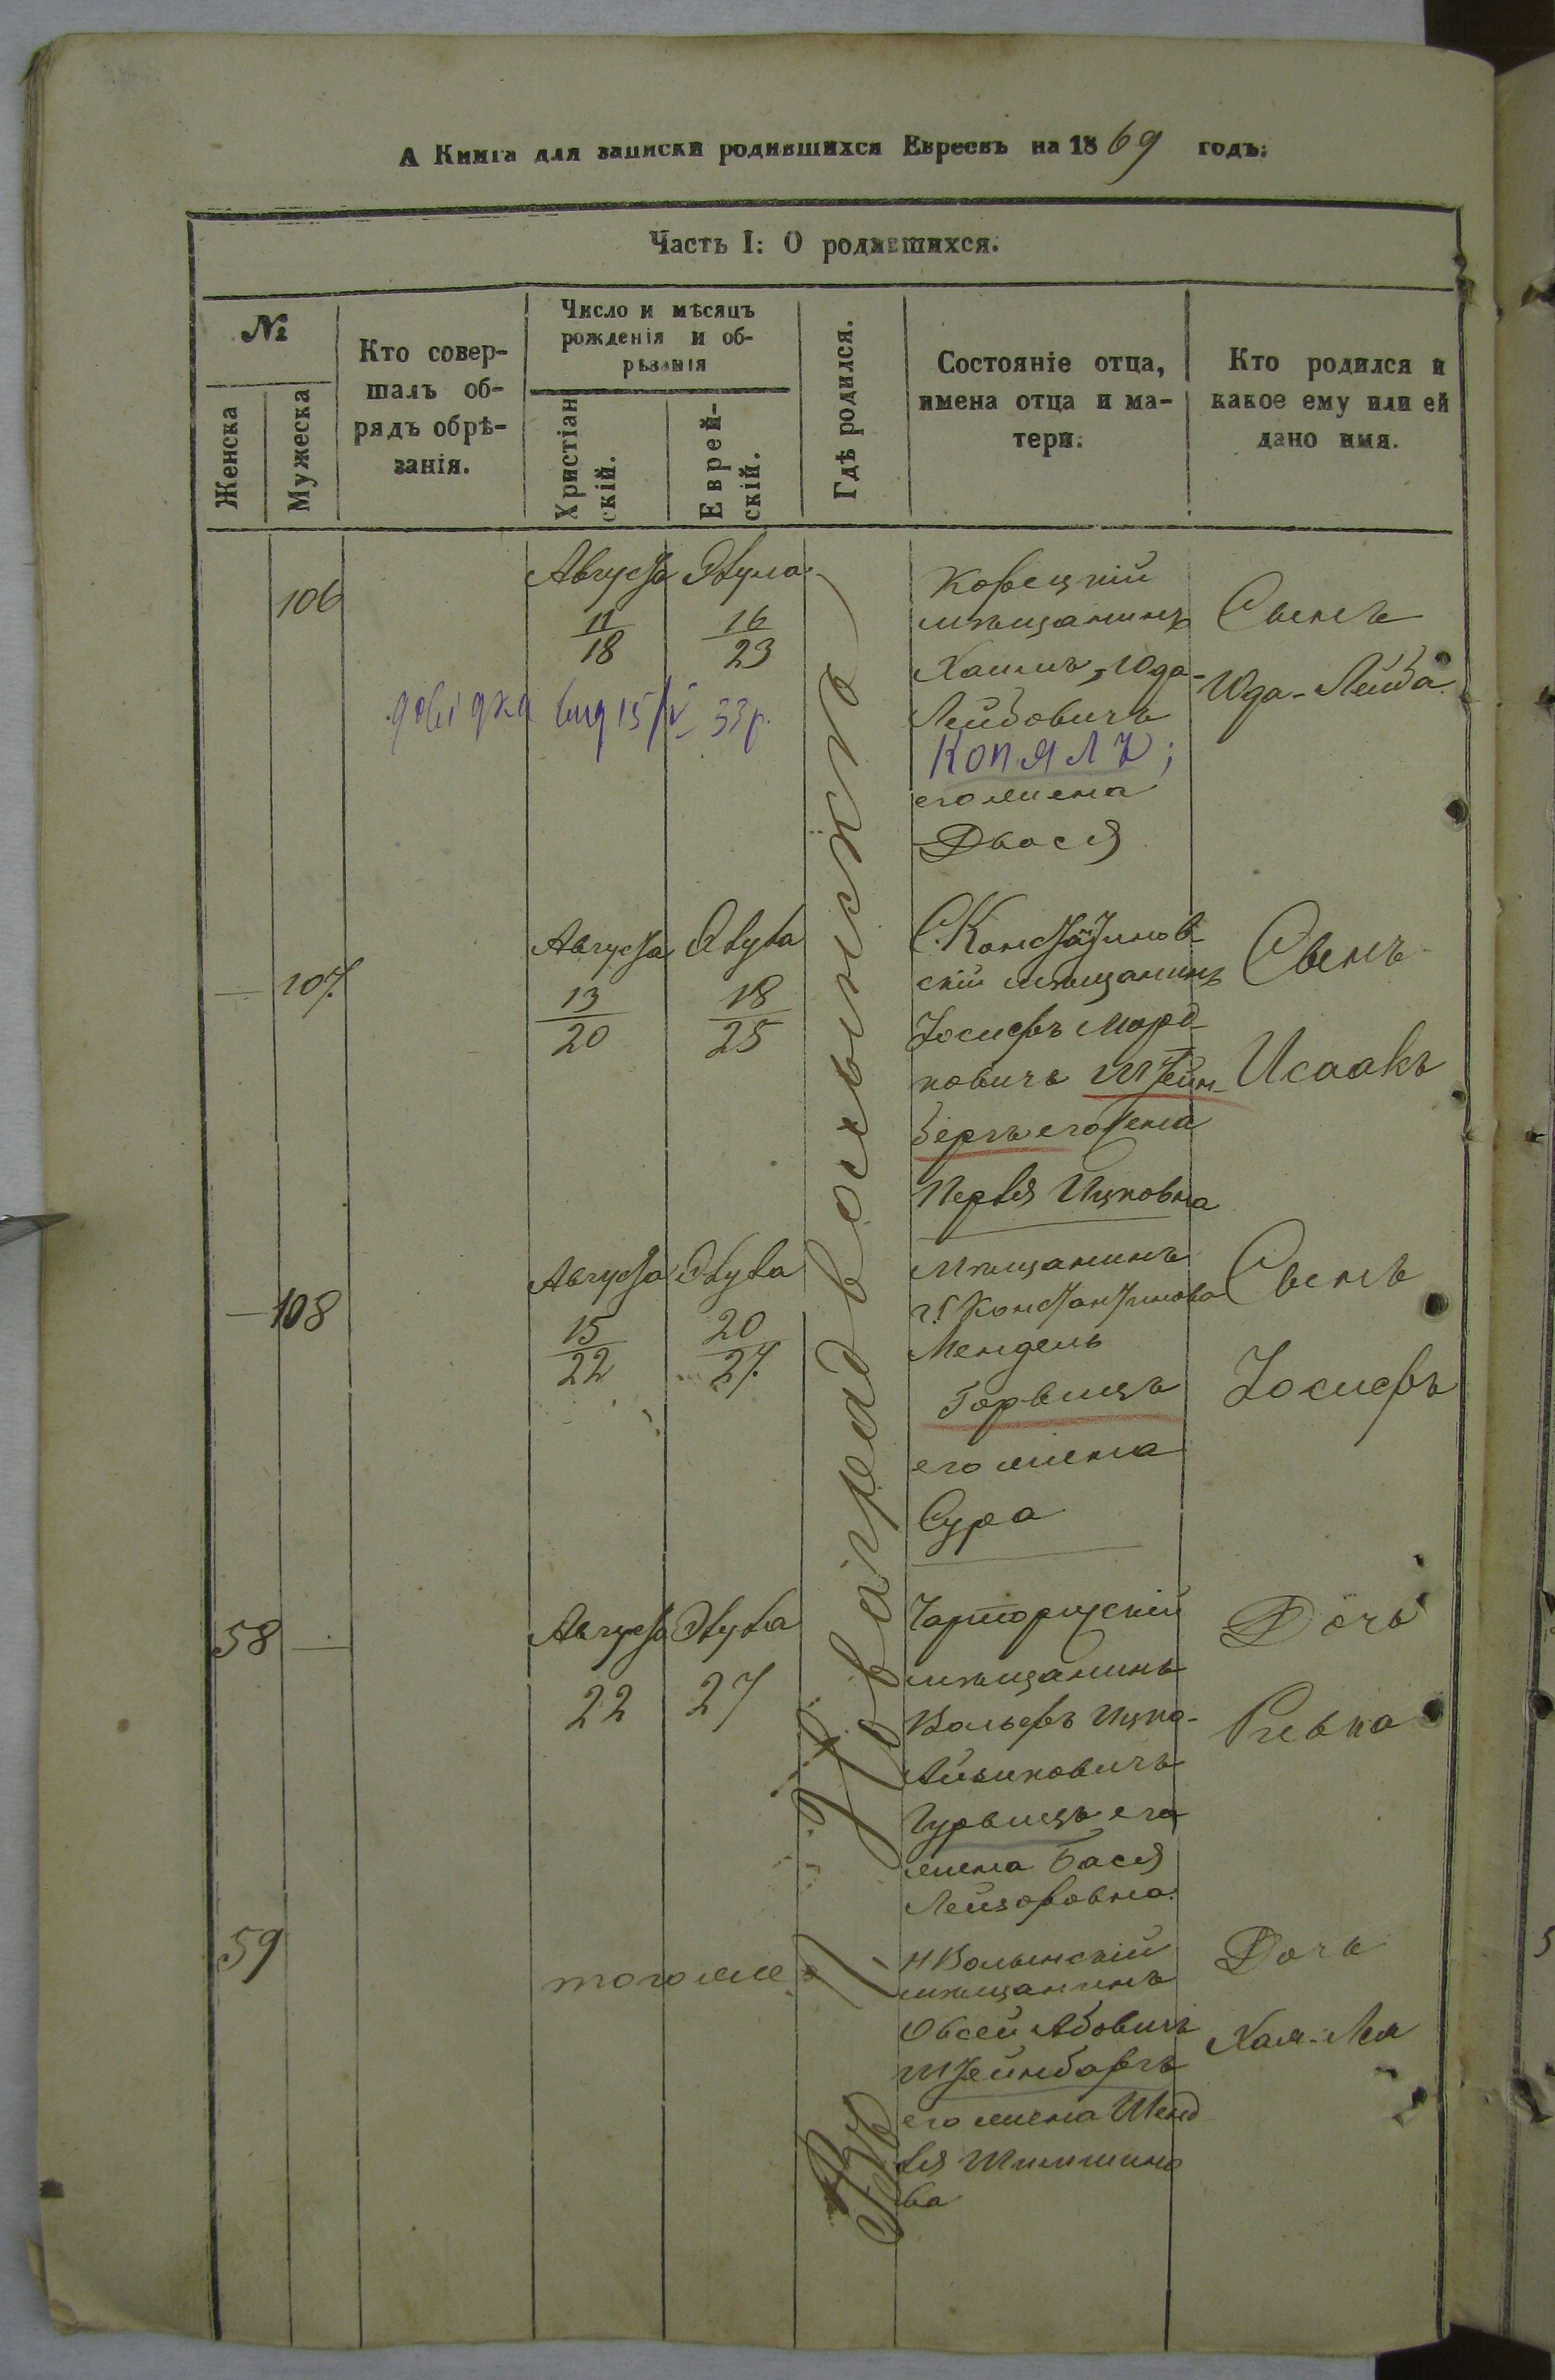 А Книга для записки родившихся Евреевъ на 1869 годъ:
Часть I: О родившихся.
№
Женска
Мужеска
Кто совер-
шалъ об-
рядъ обрѣ-
занія.
Число и мѣсяцъ
рожденія и об-
рѣзанія
Христіан
скій.
Еврей-
скій.
Гдѣ родился.
Состояніе отца,
имена отца и ма-
тери.
Кто родился и
какое ему или ей
дано имя.
Въ г. Новаградволынскѣ
106
Августа Элула
11 16
18 23
довідка від 15/IV 33р.
Корецкій
мѣщанинъ
Хаимъ, Юда-
Лейбовичъ
КОПЯЛЪ;
его жена
Двося
Сынъ
Юда-Лейба
— 107.
Августа Элула
13 18
20 25
С. Константинов-
скій мѣщанинъ
Іосифъ Морд-
ковичъ Штейн-
бергъ его жена
Перля Ицковна
Сынъ
Исаакъ
— 108
Августа Элула
15 20
22 27.
Мѣщанинъ
г. Константинова
Мендель
Горвицъ
его жена
Сура
Сынъ
Іосифъ
58 —
Августа Элула
22 27
Чарторускій
мѣщанинъ
Вольфъ Ицко-
Айзиковичъ
Гурвицъ его
жена Бася
Лейзоровна.
Дочь
Ривка
59
того же
НВолынскій
мѣщанинъ
Овсей Абовичъ
Штейнбаргъ
его жена Шенд
ля
ва
Дочь
Хая-Лея